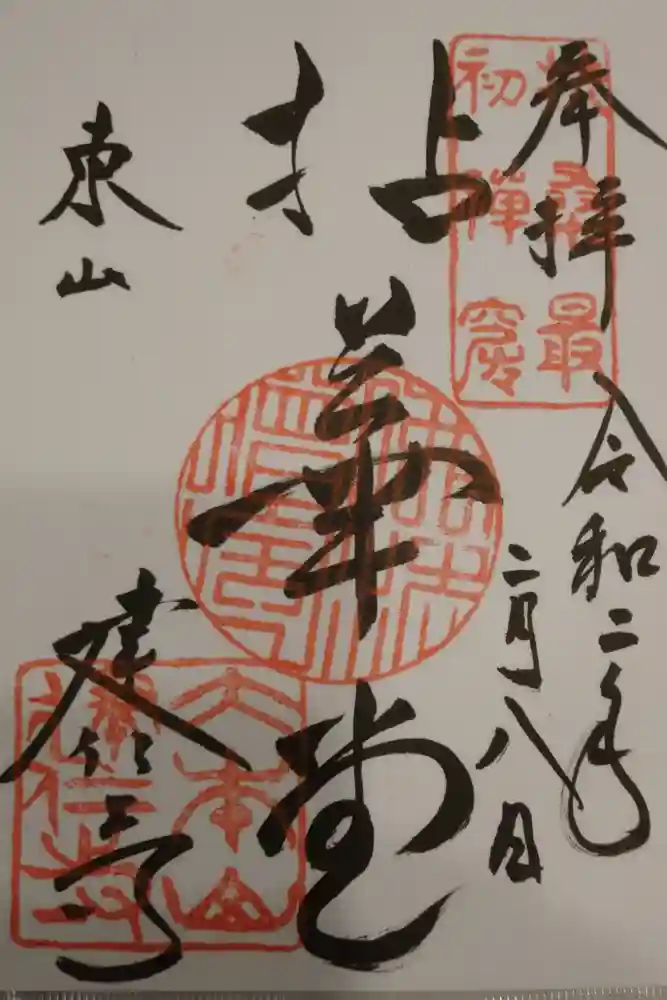 奉拝
令和二年
二月八日
扶桑最
初禅窟
拈華堂
東山
建仁寺
大本山
建仁寺